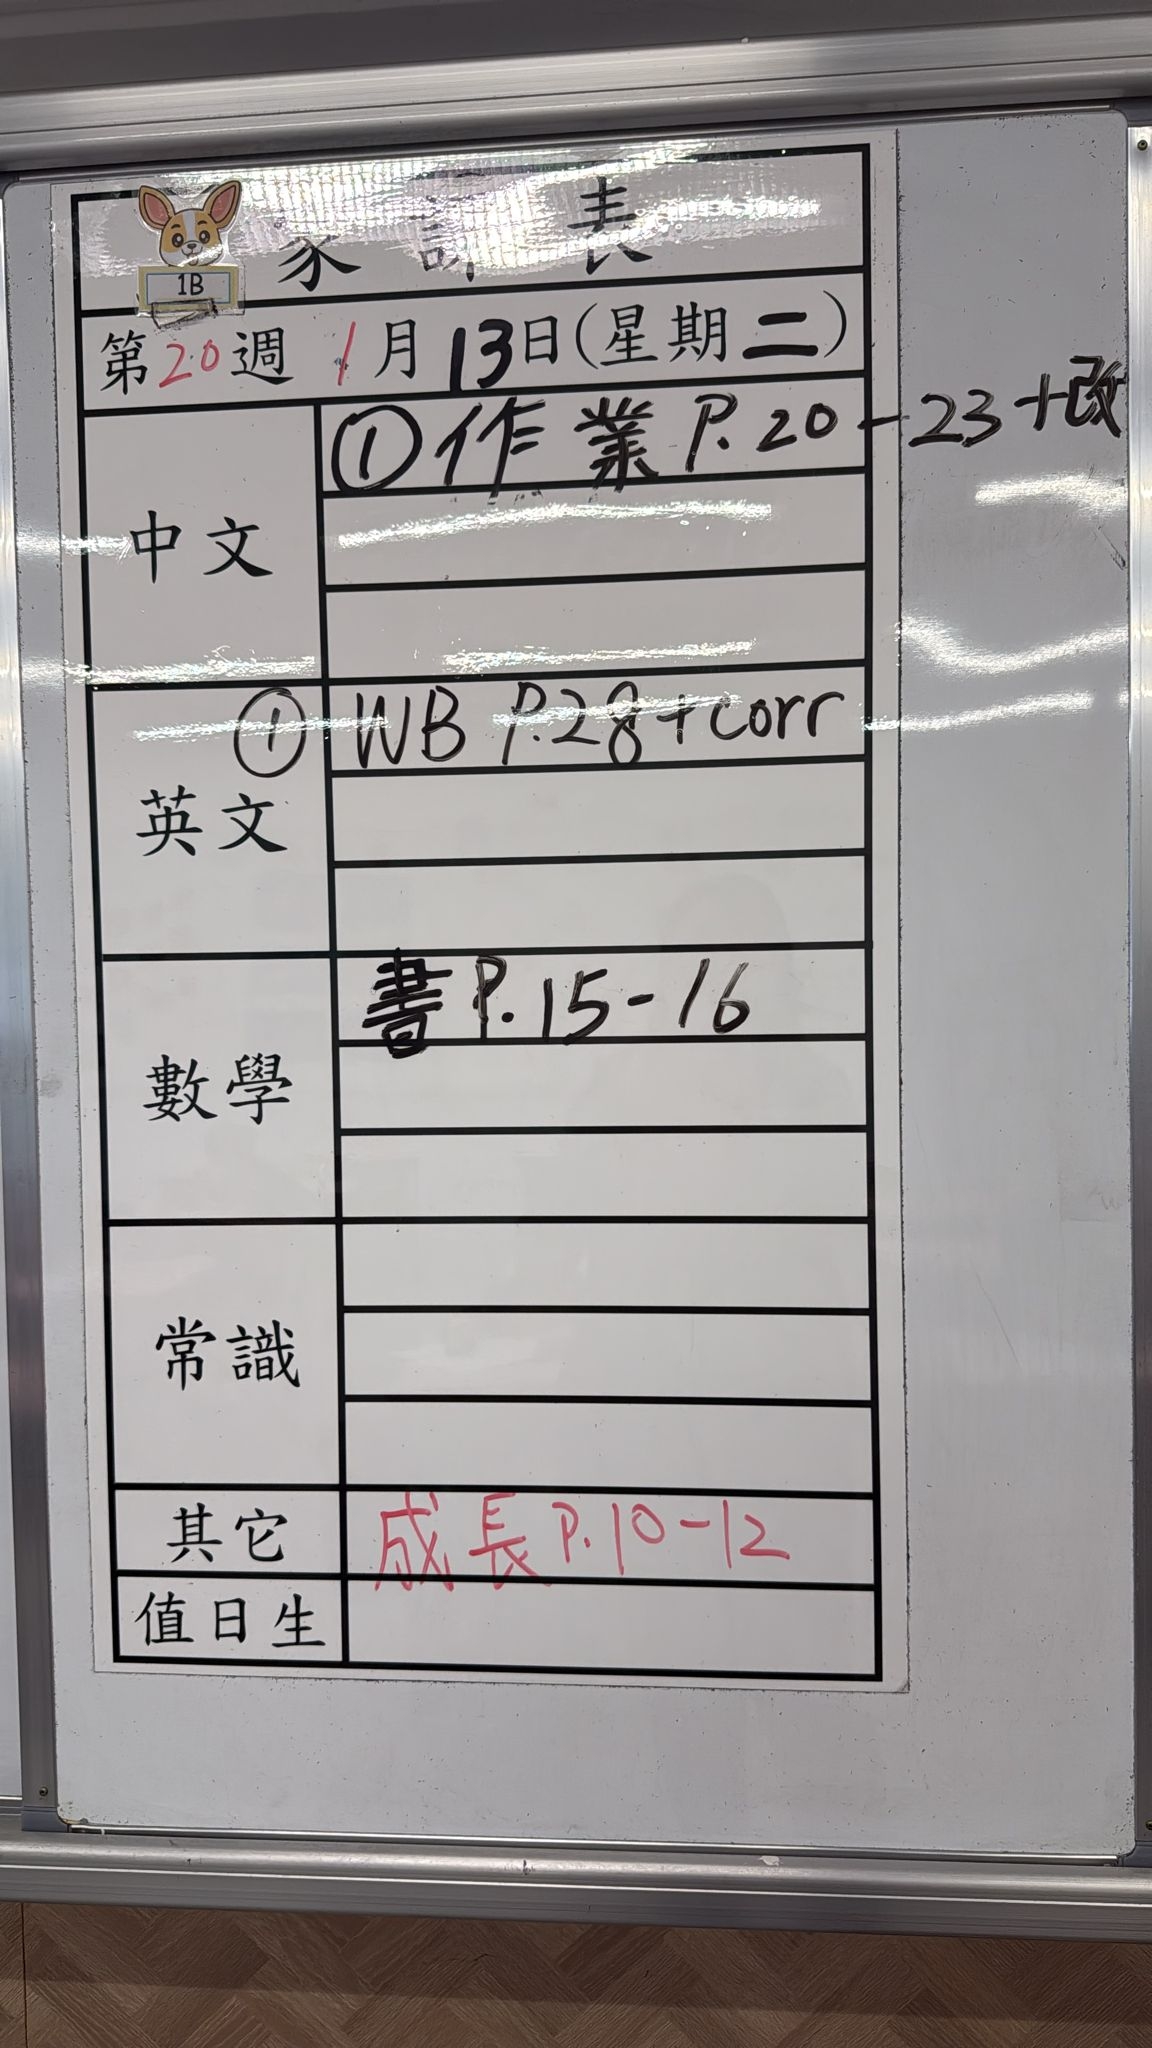 家課表
1B
第20週 1月13日(星期二)
中文
①作業 P.20-23+改
英文
① WB P.28+corr
數學
書P.15-16
常識
其它
成長P.10-12
值日生